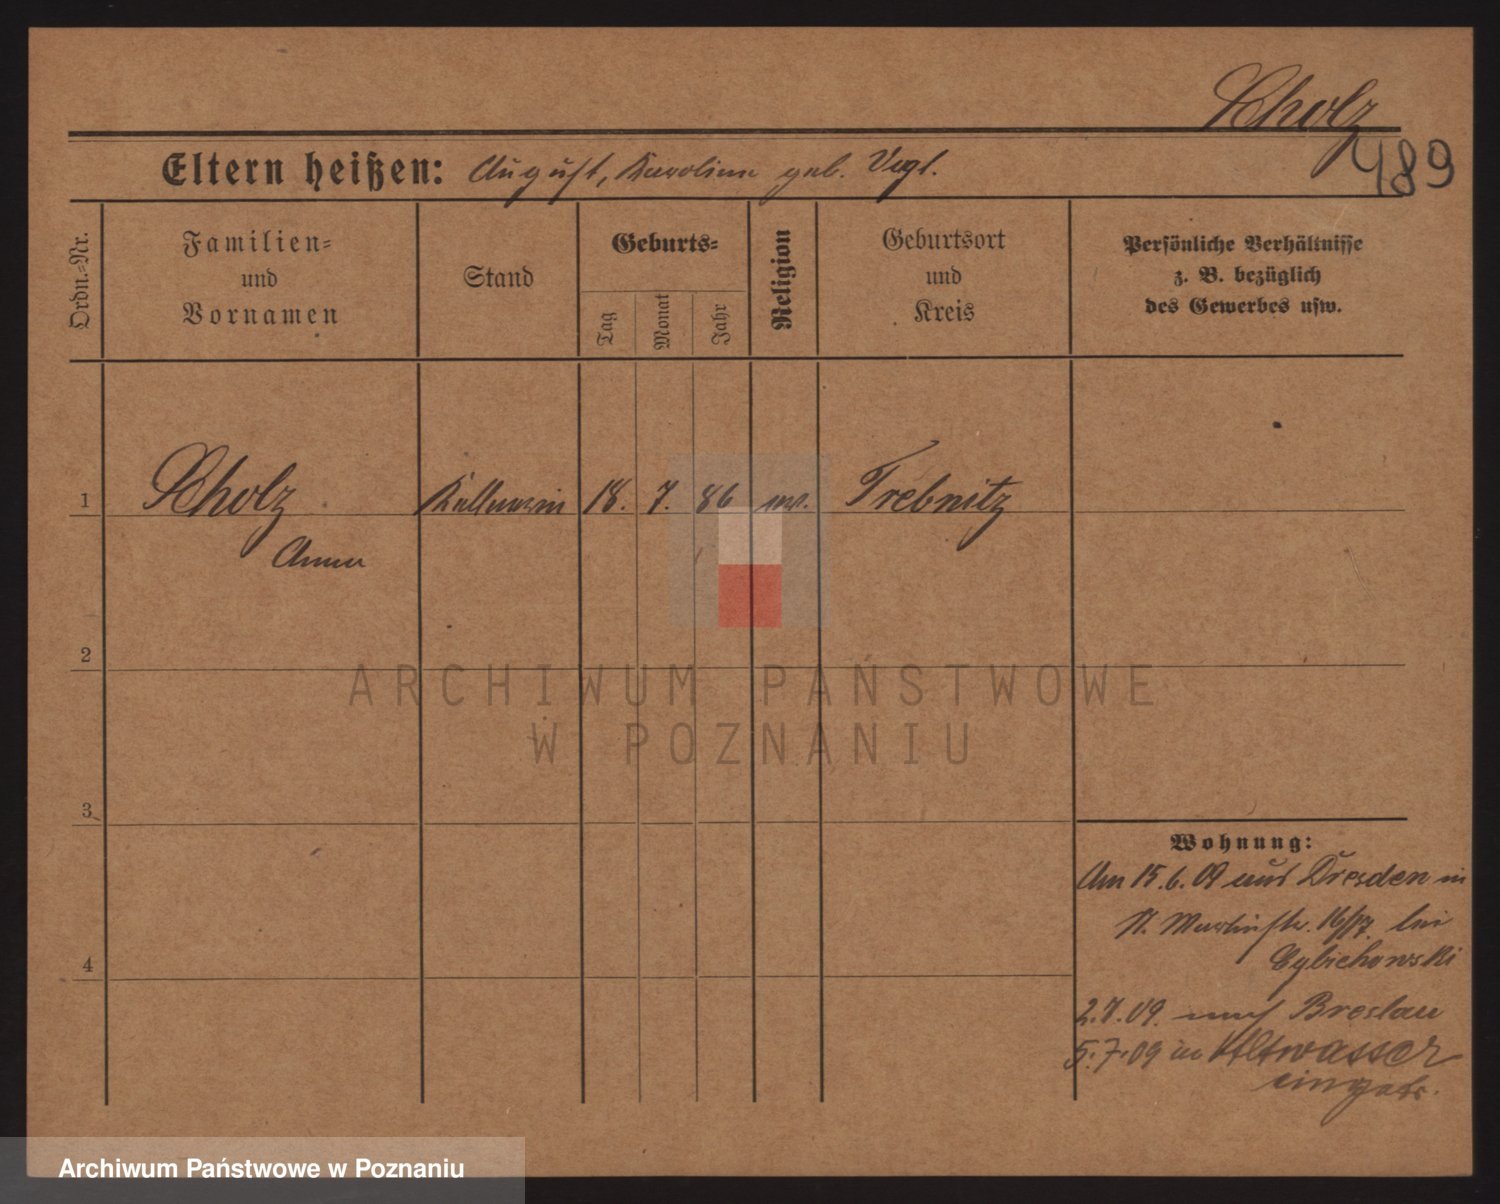 Scholz
489
Eltern heißen: August, Karolina geb. Vogt.
Ordn.-Nr.
Familien-
und
Vornamen
Stand
Geburts-
Tag
Monat
Jahr
Religion
Geburtsort
und
Kreis
Persönliche Verhältnisse
z. B. bezüglich
des Gewerbes usw.
1 Scholz Kellnerin 18. 7. 86 ev. Trebnitz
Anna
2
3
4
Wohnung:
Am 15.6.09 aus Dresden in
St. Martinstr. 16/17. bei
2.7.09. nach Breslau
5.7.09 in Altwasser
eingetr.
ARCHIWUM PAŃSTWOWE
W POZNANIU
Archiwum Państwowe w Poznaniu